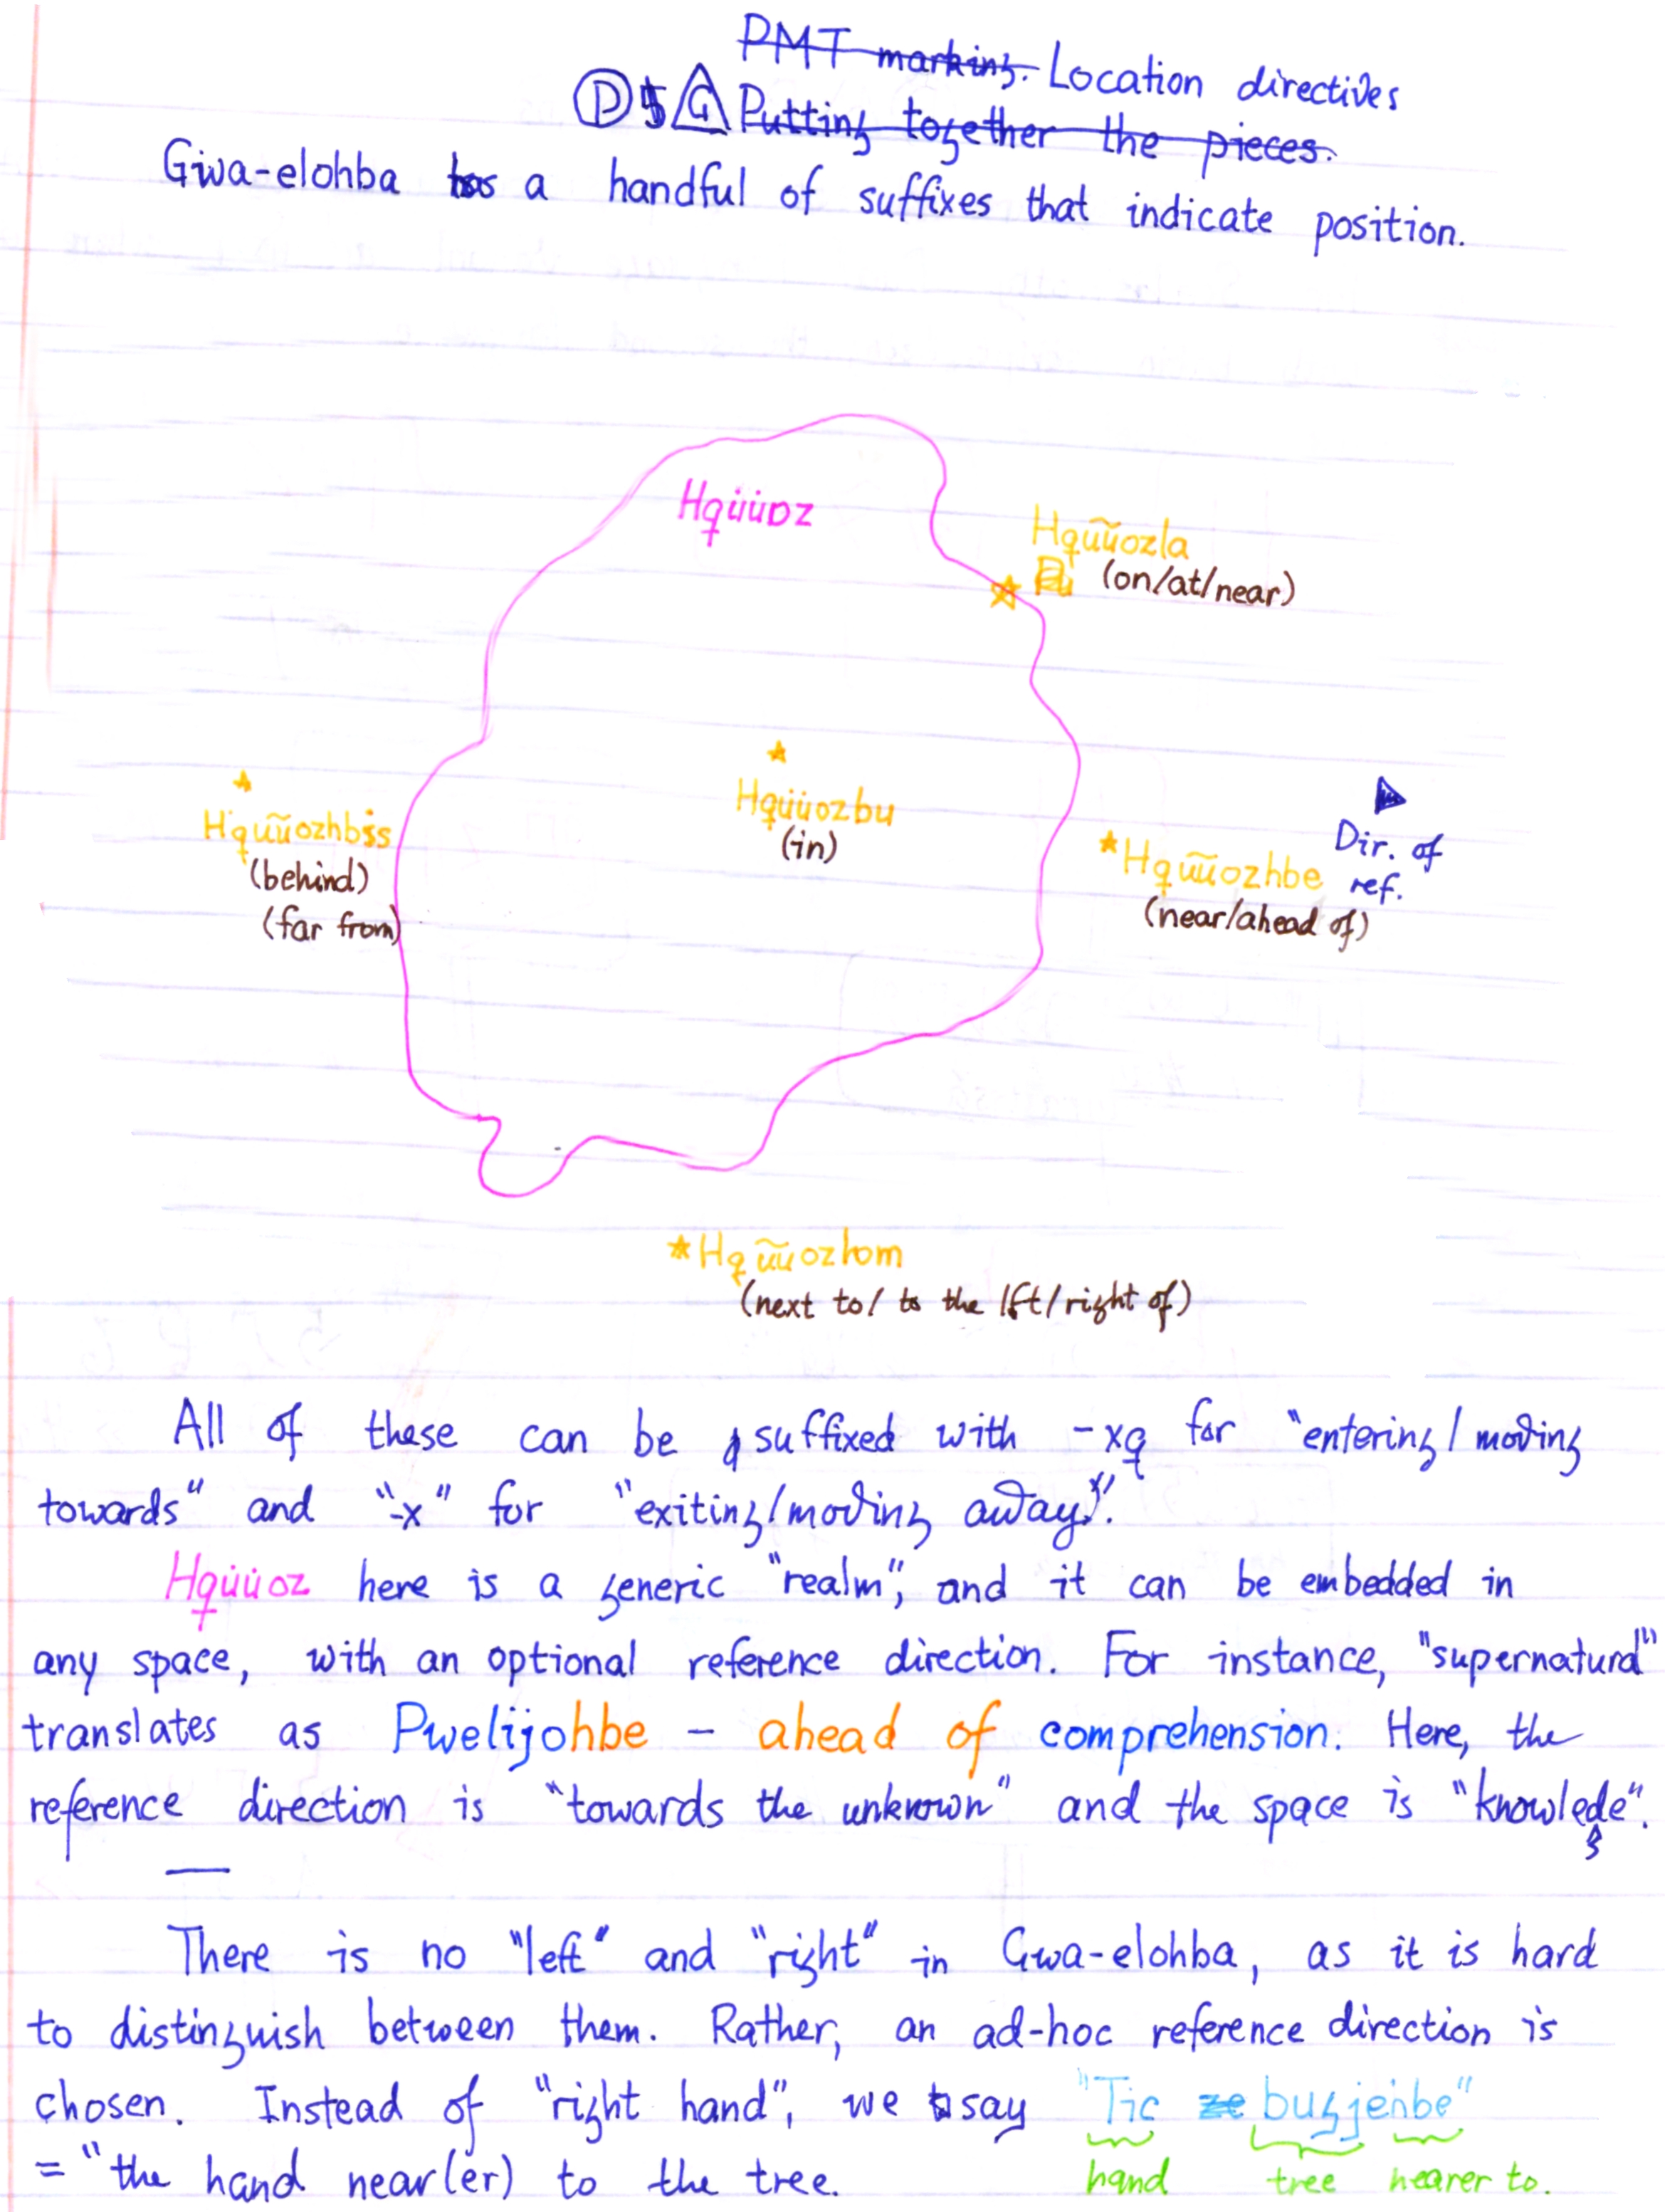 PMT marking. Location directives
D 5 G Putting together the pieces.
Gwa-elohba has a handful of suffixes that indicate position.
Hqüüoz
Hqũũozla
(on/at/near)
Hqũũozhbis
(behind)
(far from)
Hqüüozbu
(in)
Hqũũozhbe
(near/ahead of)
Dir. of
ref.
Hqũũozhom
(next to/ to the lft/right of)
All of these can be suffixed with -xq for "entering/moving
towards" and "-x" for "exiting/moving away".
Hqüüoz here is a generic "realm", and it can be embedded in
any space, with an optional reference direction. For instance, "supernatural"
translates as Pwelijohbe - ahead of comprehension. Here, the
reference direction is "towards the unknown" and the space is "knowledge".
There is no "left" and "right" in Gwa-elohba, as it is hard
to distinguish between them. Rather, an ad-hoc reference direction is
chosen. Instead of "right hand", we say "Tic ze bugjenbe"
= "the hand near(er) to the tree.
hand tree nearer to.